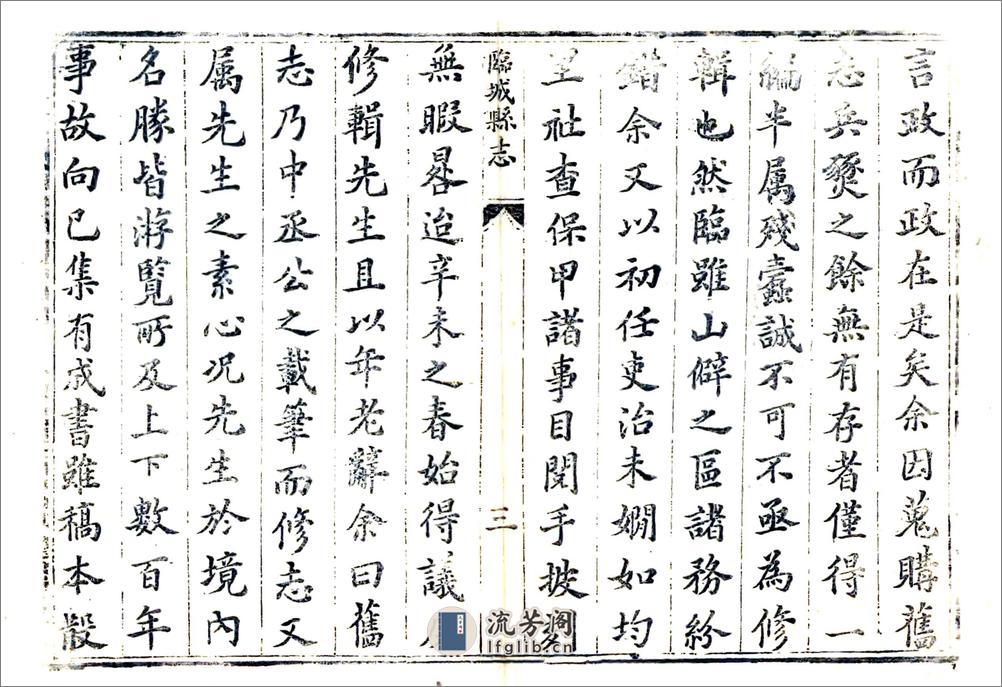 言政而政在是矣余因蒐購舊
志兵燹之餘無有存者僅得一
編半属殘蠹誠不可不亟為修
輯也然臨雖山僻之區諸務紛
錯余又以初任吏治未嫺如均
里社查保甲諸事目閱手披
臨城縣志
三
無暇晷迨辛未之春始得議
修輯先生且以年老辭余曰舊
志乃中丞公之載筆而修志又
属先生之素心况先生於境內
名勝皆游覽所及上下數百年
事故向已集有成書雖稿本散
流芳阁
lfglib.cn